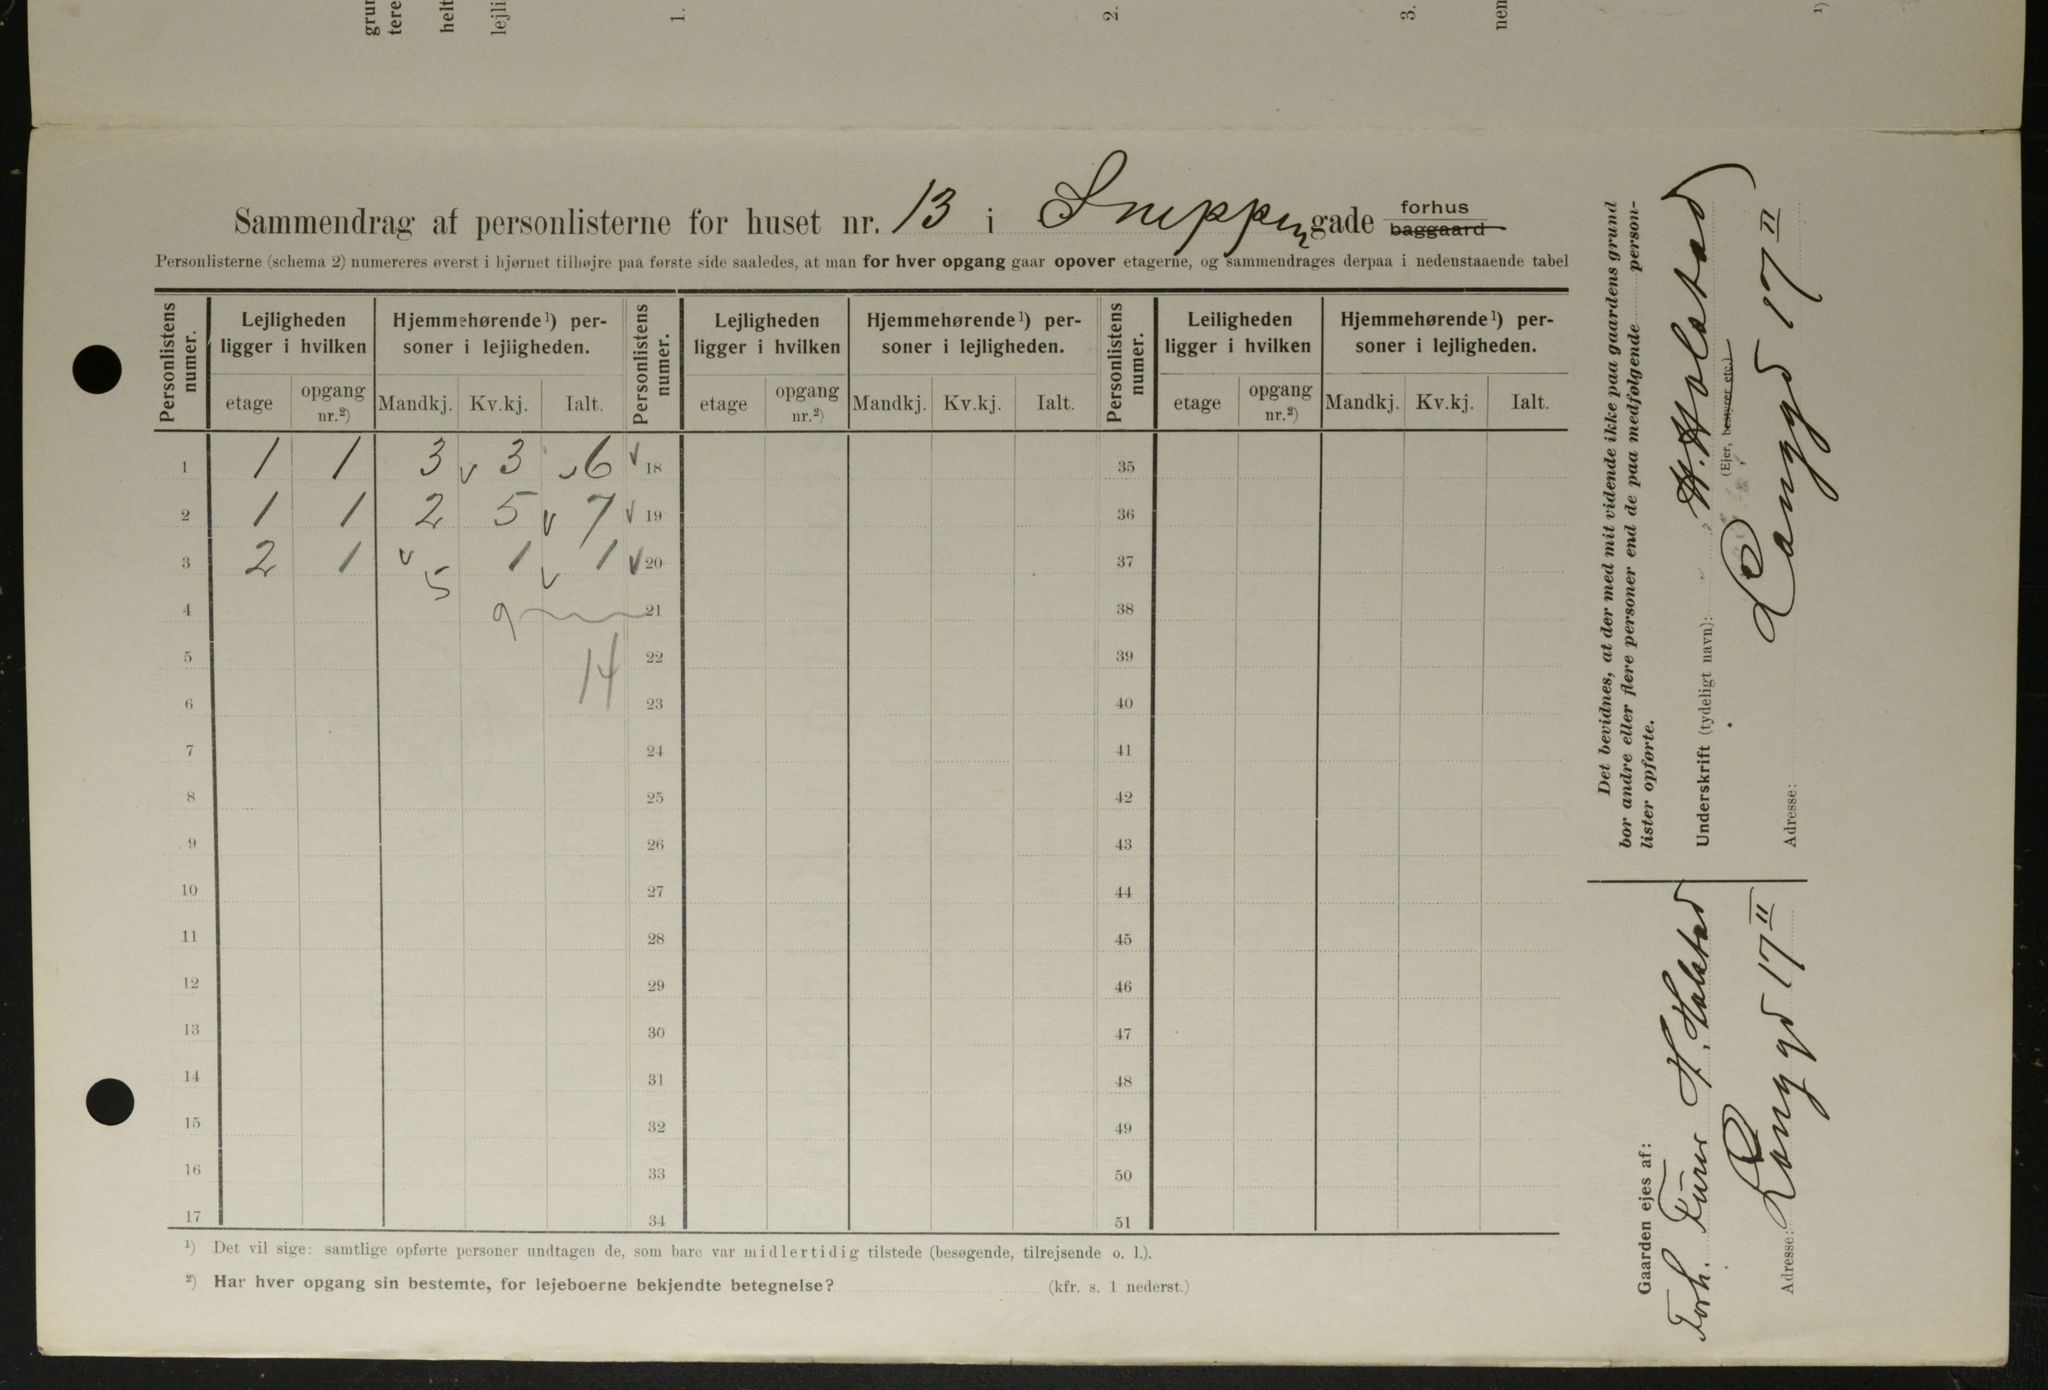 grun
tere
helt
lejli
1.
2.
3.
nen
1)
Sammendrag af personlisterne for huset nr. 13 i Snippengade forhus baggaard
Personlisterne (schema 2) numereres øverst i hjørnet tilhøjre paa første side saaledes, at man for hver opgang gaar opover etagerne, og sammendrages derpaa i nedenstaaende tabel
Personlistens numer. Lejligheden ligger i hvilken Hjemmehørende 1) personer i lejligheden. Personlistens numer. Lejligheden ligger i hvilken Hjemmehørende 1) personer i lejligheden. Personlistens numer. Leiligheden ligger i hvilken Hjemmehørende 1) personer i lejligheden.
etage opgang nr.2) Mandkj. Kv.kj. Ialt. etage opgang nr.2) Mandkj. Kv.kj. Ialt. etage opgang nr.2) Mandkj. Kv.kj. Ialt.
1 1 1 3 v 3 v 6 v 18 35
2 1 1 2 5 v 7 v 19 36
3 2 1 v 1 v 1 v 20 37
5
4 9 21 38
5 14 22 39
6 23 40
7 24 41
8 25 42
9 26 43
10 27 44
11 28 45
12 29 46
13 30 47
14 31 48
15 32 49
16 33 50
17 34 51
1) Det vil sige: samtlige opførte personer undtagen de, som bare var midlertidig tilstede (besøgende, tilrejsende o. l.).
2) Har hver opgang sin bestemte, for lejeboerne bekjendte betegnelse? (kfr. s. 1 nederst.)
Det bevidnes, at der med mit vidende ikke paa gaardens grund
bor andre eller flere personer end de paa medfølgende personlister opførte.
Underskrift (tydeligt navn): H. Holstad
(Ejer, bestyrer etc.)
Adresse: Langgd 17 II
Gaarden ejes af:
Torh. H. Holstad
Adresse: Langgd 17 II